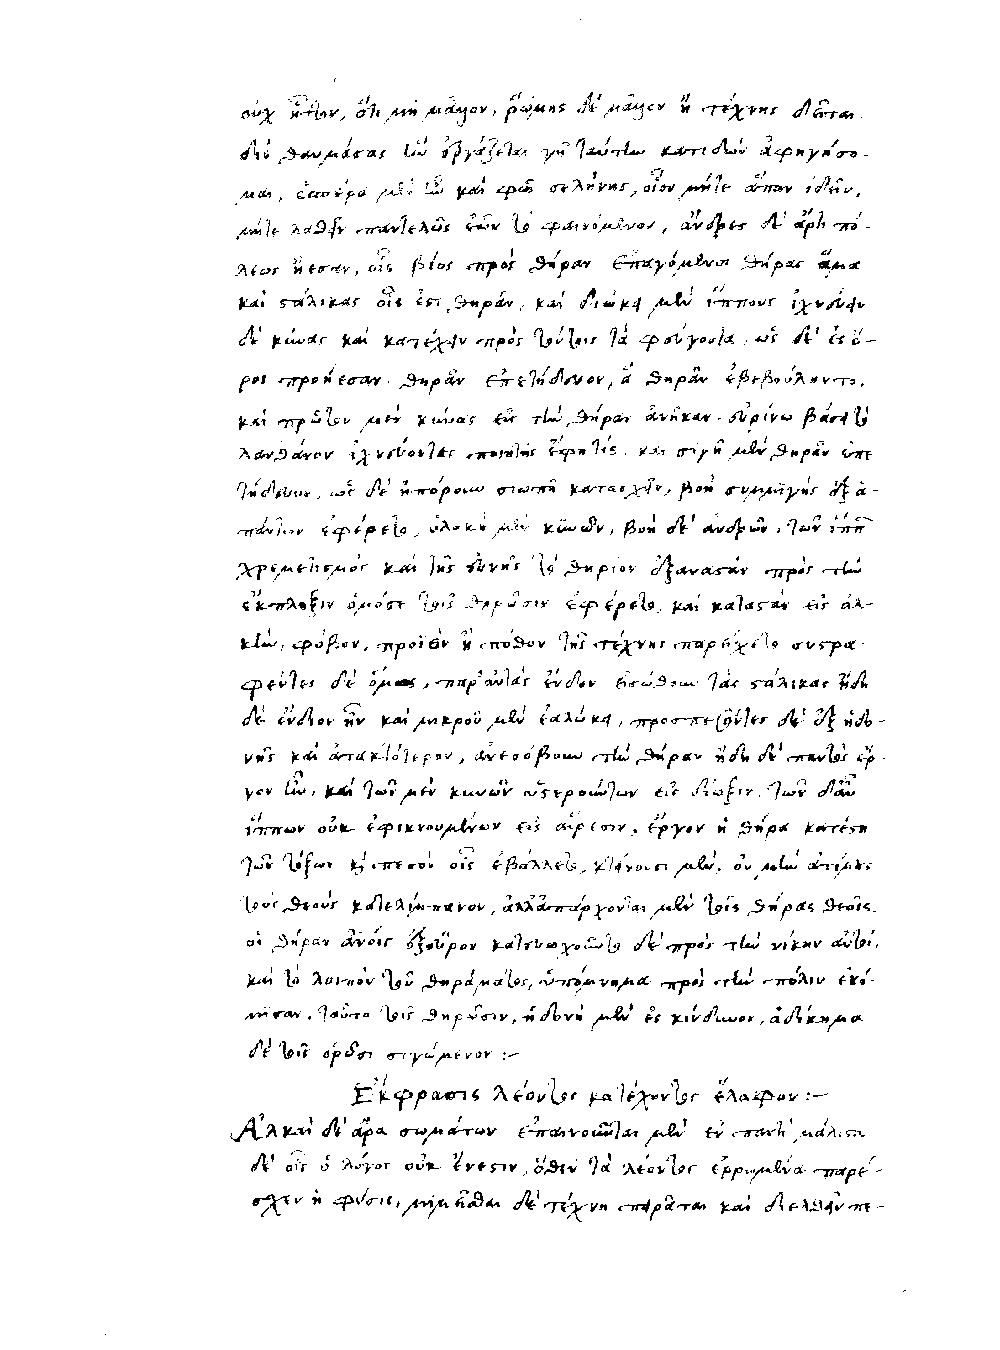 οὐχ ἧττον, ὅτι μὴ μᾶλλον, ῥώμης δὲ μᾶλλον ἢ τέχνης δεῖται.
διὸ θαυμάσας ὧν ἐργάζεται γῆ ταύτην κατιδὼν ἀφηγήσο-
μαι, ἑσπέρα μὲν ἦν καὶ φῶς σελήνης, οἷον μήτε ἅπαν ἰδεῖν,
μήτε λαθεῖν παντελῶς ἐῶν τὸ φαινόμενον, ἄνδρες δὲ ἄρτι πό-
λεως ἤεσαν, οἷς βίος πρὸς θήραν ἐπαγόμενοι θήρας ἅμα
καὶ στάλικας οἷς ἔστι θηρᾶν, καὶ διώκειν μὲν ἵππους ἰχνεύειν
δὲ κύνας καὶ κατέχειν πρὸς τούτοις τὰ φεύγοντα, ὡς δὲ ἐς ὄ-
ρος προῄεσαν θηρᾶν ἐπετήδευον, ἃ θηρᾶν ἐβεβούληντο,
καὶ πρῶτον μὲν κύνας εἰς τὴν θήραν ἀνῆκαν εὑρίνω βάσει τὸ
λανθάνον ἰχνεύοντας ποιητὴς ἔφη τίς. καὶ σιγῇ μὲν θηρᾶν ἐπε
τήδευον, ὡς δὲ ἠπόρουν σιωπῇ κατασχεῖν, βοὴ συμμιγὴς ἐξ ἁ-
πάντων ἐφέρετο, ὑλακὴ μὲν κυνῶν, βοὴ δὲ ἀνδρῶν, τῶν ἵππων
χρεμετισμὸς καὶ τῆς εὐνῆς τὸ θηρίον ἐξαναστὰν πρὸς τὴν
ἔκπληξιν ὁμόσε τοῖς θηρῶσιν ἐφέρετο, καὶ καταστὰν εἰς ἀλ-
κὴν, φόβον, προϊὸν ἢ πόθον τῆς τέχνης παρείχετο συστρα
φέντες δὲ ὅμως, παρ' αὐτὰς ἔνδον εἰσώθουν τὰς στάλικας ἤδη
δὲ ἔνδον ἦν καὶ μικροῦ μὲν ἑαλώκει, προσπεσόντες δὲ ἐξ ἡδο-
νῆς καὶ ἀτακτότερον, ἀνεσόβουν τὴν θήραν ἤδη δὲ παντὸς ἔρ-
γον ἦν, καὶ τῶν μὲν κυνῶν ὑστερούντων εἰς δίωξιν, τῶν δ' αὖ
ἵππων οὐκ ἐφικνουμένων εἰς αἵρεσιν, ἔργον ἡ θήρα κατέστη
τῶν τόξων καὶ πεσὸν οἷς ἐβάλλετο, κτείνουσι μὲν, οὐ μὴν ἀτίμους
τοὺς θεοὺς κατελίμπανον, ἀλλ' ἀπάρχονται μὲν τοῖς θήρας θεοῖς.
οἱ θήραν αὐτοῖς ἐξεῦρον κατευωχοῦντο δὲ πρὸς τὴν νίκην αὐτοί.
καὶ τὸ λοιπὸν τοῦ θηράματος, ὑπόμνημα πρὸς τὴν πόλιν ἐκό-
μισαν, τοῦτο τοῖς θηρῶσιν, ἡδονὴ μὲν ἐς κίνδυνον, ἀδίκημα
δὲ τοῖς ὁρῶσι σιγώμενον :–
Ἔκφρασις λέοντος κατέχοντος ἔλαφον :–
Ἀλκαὶ δὲ ἄρα σωμάτων ἐπαινοῦνται μὲν ἐν παντὶ μάλιστα
δὲ οἷς ὁ λόγος οὐκ ἔνεστιν, ὅθεν τὰ λέοντος ἐρρωμένα παρέ-
σχεν ἡ φύσις, μιμεῖσθαι δὲ τέχνη πειρᾶται καὶ διελθεῖν πε-